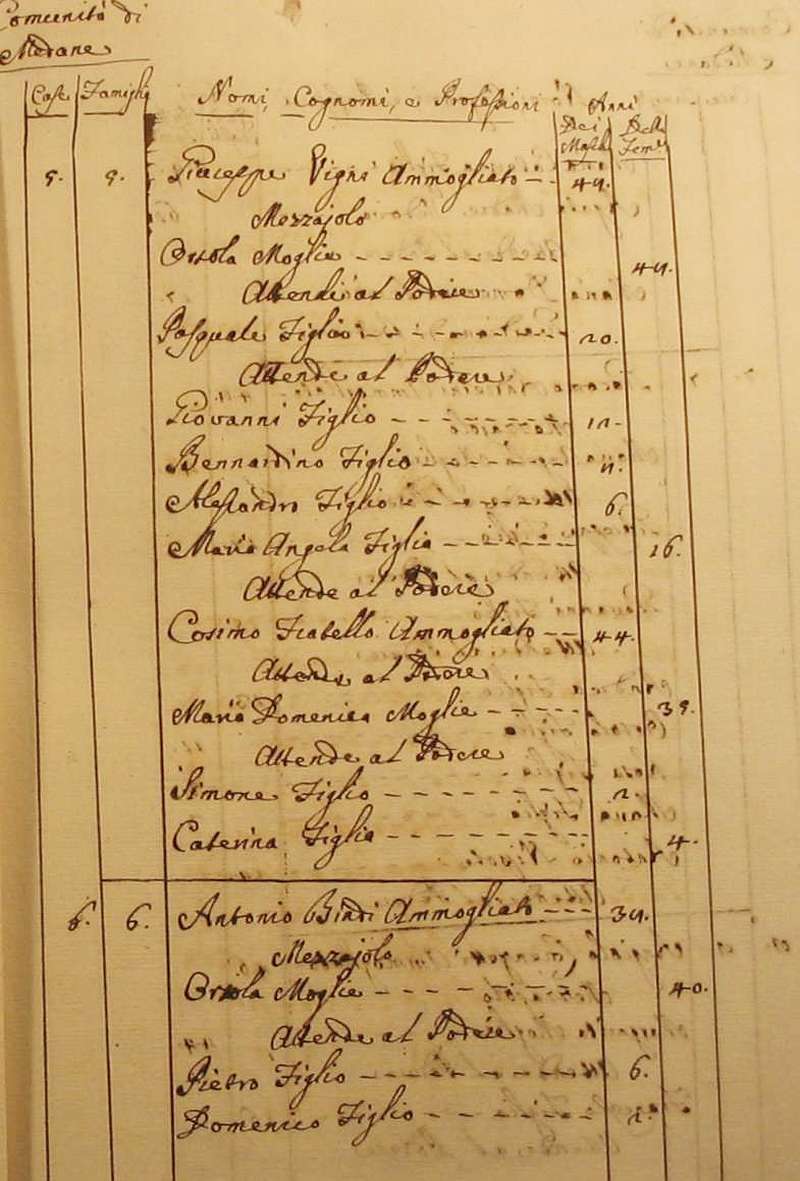 Comunità di
Case Famiglie Nomi, Cognomi, e Professioni Anni
Dei Masch. Delle Fem.
5. 5. Giuseppe Vigni Ammogliato
Mezzajolo
Orsola Moglie
Attende al Podere
Pasquale Figlio 20.
Attende al Podere
Giovanni Figlio
Bernardino Figlio
Alessandro Figlio 6.
Maria Angola Figlia 16.
Attende al Podere
Cosimo Fratello Ammogliato 44.
Attende al Podere
Maria Domenica Moglie
Attende al Podere
Simone Figlio
Caterina Figlia 4.
6. 6. Antonio Ammogliato
Mezzajolo
Orsola Moglie 40.
Attende al Podere
Pietro Figlio 6.
Domenico Figlio